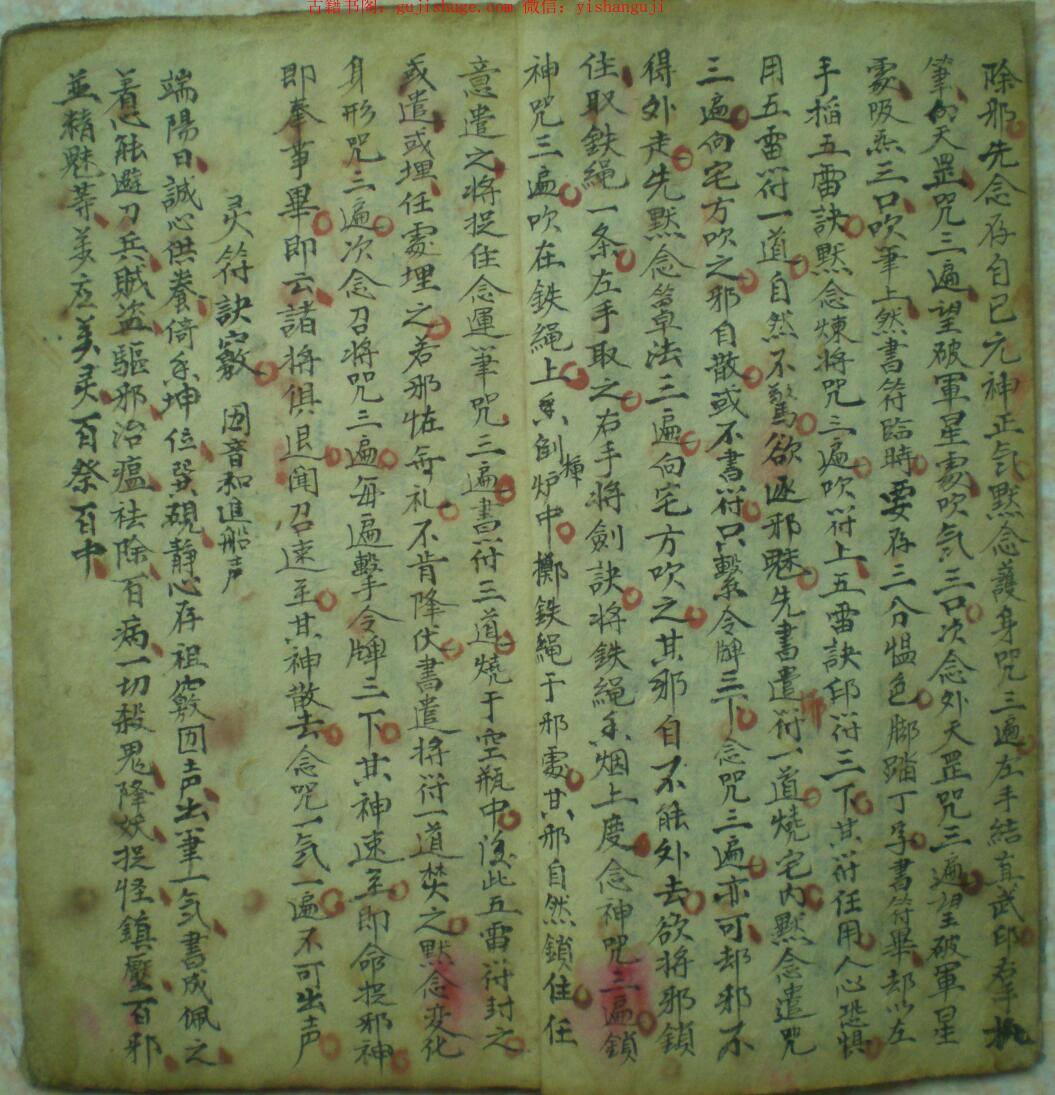 古籍书阁：gujishuge.com 微信：yishanguji
除邪先念存自己元神正氣默念護身咒三遍左手結真武印右手执
筆向天罡咒三遍望破軍星䖏吹氣三口次念外天罡咒三遍望破軍星
䖏吸炁三口吹筆上然書符臨時要存三分愠色脚踏丁字書符畢却以左
手稻五雷訣默念煉將咒三遍吹符上五雷訣印符三下其符任用人心恐惧
用五雷符一道自然不驚欲逐邪魅先書遣符一道燒宅内默念遣咒
三遍向宅方吹之邪自散或不書符只繫令牌三下念咒三遍亦可却邪不
得外走先默念草法三遍向宅方吹之其邪自不能外去欲將邪鎖
住取鉄繩一条左手取之右手將劍訣將鉄繩香烟上度念神咒三遍鎖
神咒三遍吹在鉄繩上香劍炉中擲鉄繩于邪䖏其邪自然鎖住任
揮
意遣之將捉住念運筆咒三遍書符三道燒于空瓶中後此五雷符封之
或遣或埋任䖏埋之若邪怪無礼不肯降伏書遣将符一道焚之默念变化
身形咒三遍次念召将咒三遍每遍擊令牌三下其神速至即命捉邪神
即奉事畢即云諸将俱退聞召速至其神散去念咒一气一遍不可出声
灵符訣竅 因音和進船声
端陽日誠心供養倚香坤位巽硯静心存祖竅因声出筆一氣書成佩之
着忽能避刀兵賊盗驅邪治瘟祛除百病一切殺鬼降妖捉怪鎮壓百邪
並精魅等並应美灵百祭百中